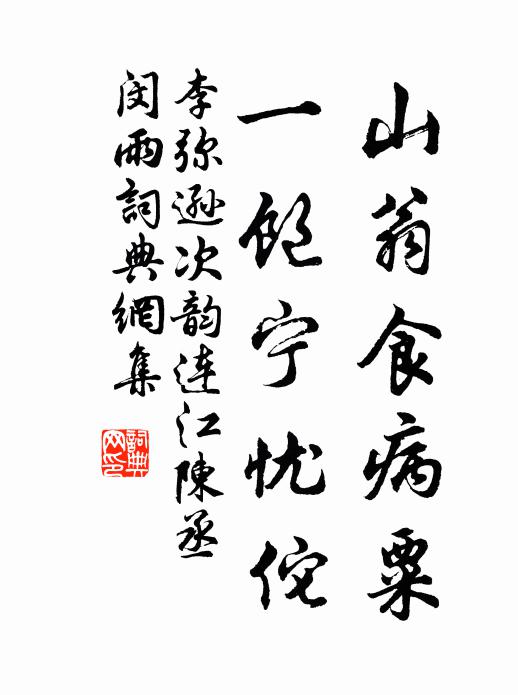 山翁食病粟
一饱宁忧侘
李弥逊次韵连江陳丞
闵雨詞典網集
詞典网印